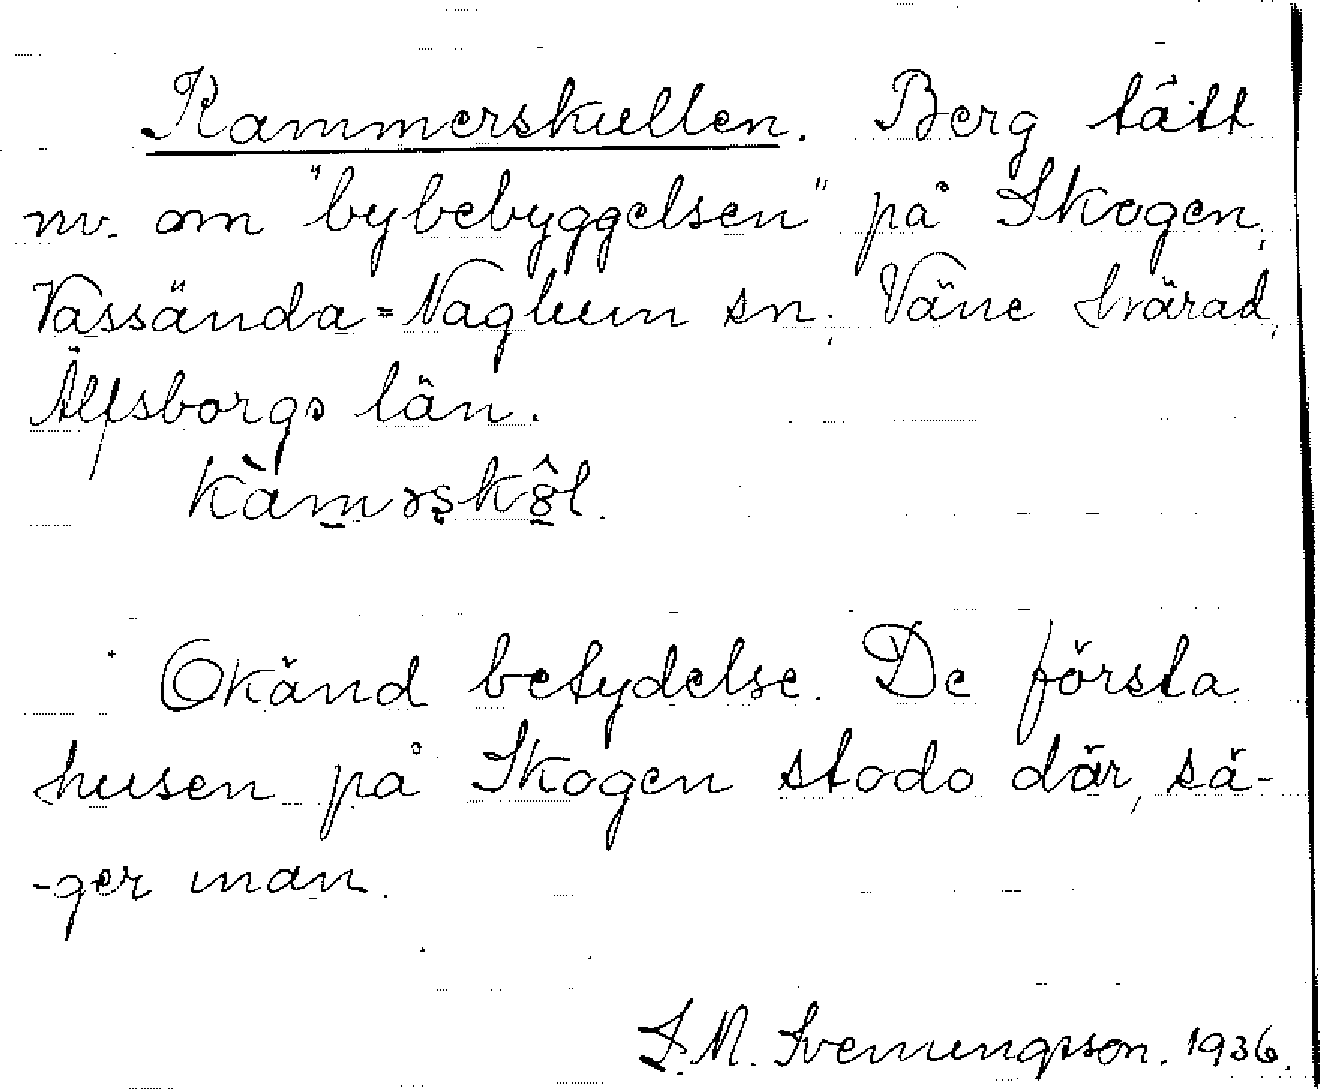 Kammerskullen. Berg tätt
nv. om "bybebyggelsen" på Skogen,
Vassända=Naglum sn, Väne härad,
Älfsborgs län.
kàm̲əʂkô̲l.
Okänd betydelse. De första
husen på Skogen stodo där, sä-
-ger man.
F. M. Svenungsson. 1936.